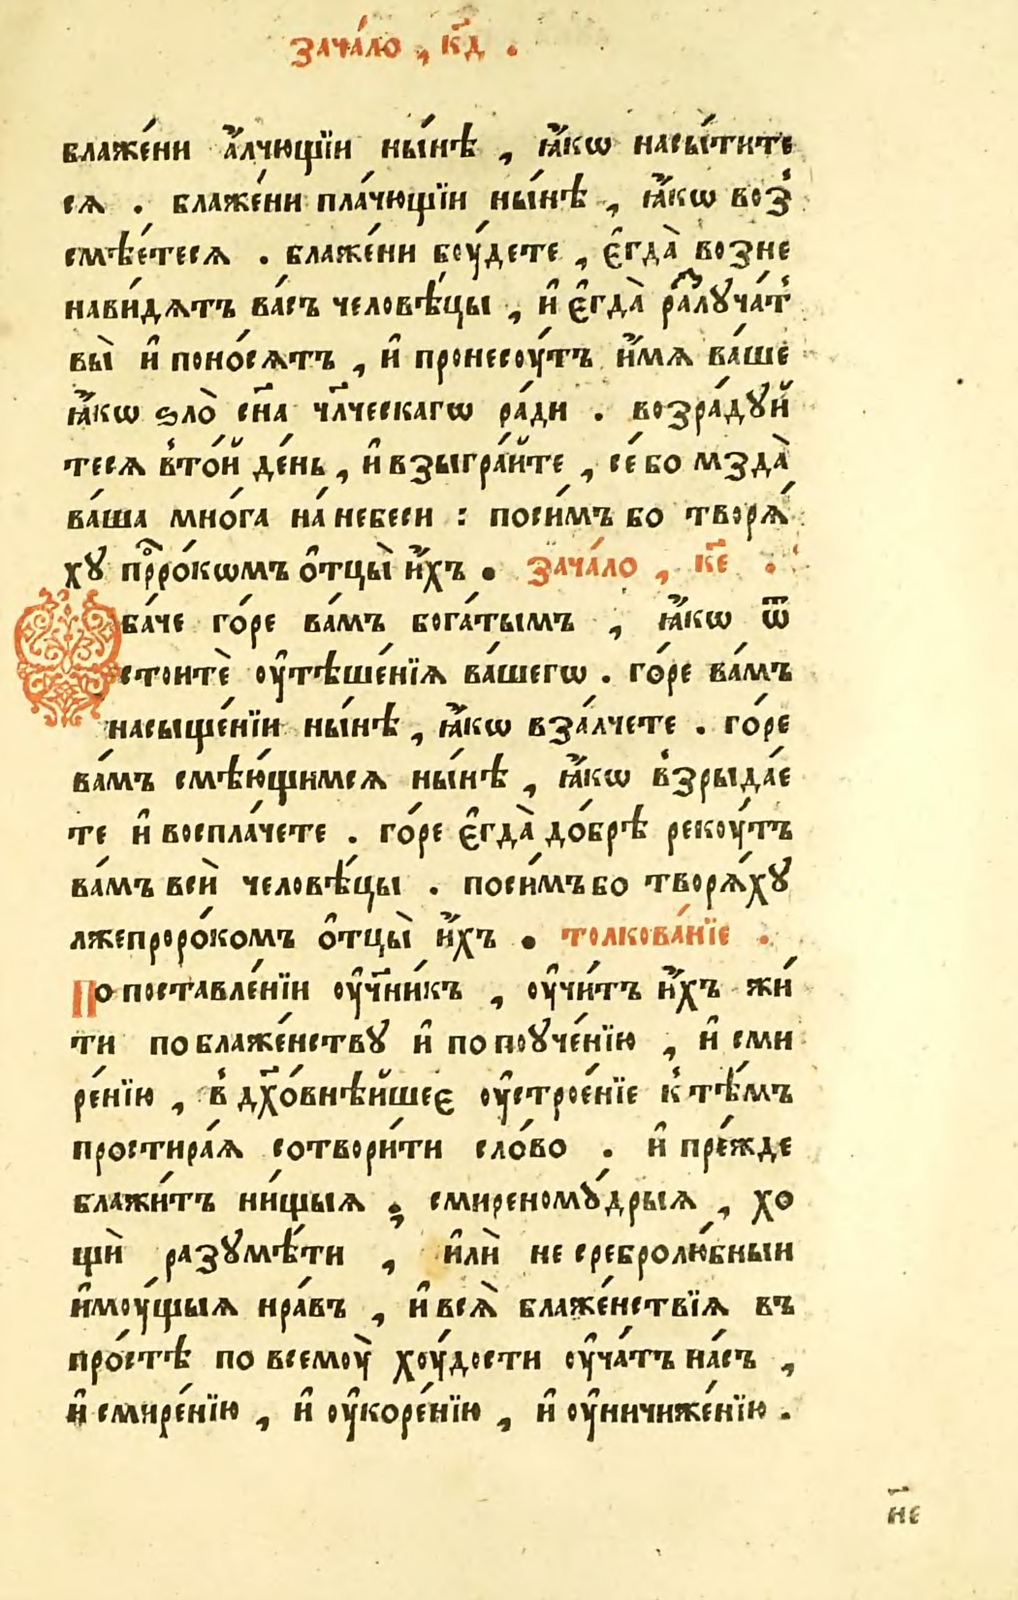 зача́ло , к҃д .
блаже́ни а҆́лчющїи ны́нѣ , ꙗ҆́кѡ насы́тите
сѧ . блаже́ни пла́чющїи ны́нѣ , ꙗ҆́кѡ воз̾
смѣе́тесѧ . блаже́ни боу́дете , є҆гда̀ возне
нави́дѧтъ ва́съ человѣ́цы , и҆ є҆гда̀ разлꙋча́т̾
вы̀ и҆ поно́сѧтъ , и҆ пронесоу́тъ и҆́мѧ ва́ше
ꙗ҆́кѡ ѕло̀ сн҃а чл҃ческагѡ ра́ди . возра́дꙋй
тесѧ в̾то́й де́нь , и҆ взыгра́йте , се́ бо мзда̀
ва́ша мно́га на́ небеси : поси́мъ бо творѧ́
хꙋ прⷪ҇ро́кѡмъ ѻ҆тцы̀ и҆́хъ . зача́ло , к҃е .
ба́че го́ре ва́мъ бога́тымъ , ꙗ҆́кѡ ѿ
стоитѐ оу҆тѣше́нїѧ ва́шегѡ . го́ре ва́мъ
насыще́нїи ны́нѣ , ꙗ҆́кѡ вза́лчете . го́ре
ва́мъ смѣю́щимсѧ ны́нѣ , ꙗ҆́кѡ в̾зрыда́е
те и҆ воспла́чете . го́ре є҆гда̀ до́брѣ рекоу́тъ
ва́мъ всѝ человѣ́цы . поси́мъ бо творѧ́хꙋ
лжепроро́комъ ѻ҆тцы̀ и҆́хъ . толкова́нїе .
По поставле́нїи оу҆ч҃ни́къ , оу҆чи́тъ и҆́хъ жи́
ти по блаже́нствꙋ и҆ по поꙋче́нїю , и҆ сми
ре́нїю , в̾ дх҃о́внѣйшеє оу҆строе́нїе к̾ тѣ́мъ
простира́ѧ сотвори́ти сло́во . и҆ пре́жде
блажи́тъ ни́щыѧ , смиреномꙋ́дрыѧ , хо
щѝ разꙋмѣ́ти , и҆лѝ не сребролю́бныи
и҆моу́щыѧ нра́въ , и҆ всѧ̀ блаже́нствїѧ въ
про́стѣ по всемоу̀ хоу́дости оу҆ча́тъ на́съ ,
и҆ смире́нїю , и҆ оу҆коре́нїю , и҆ оу҆ничиже́нїю .
н҃е